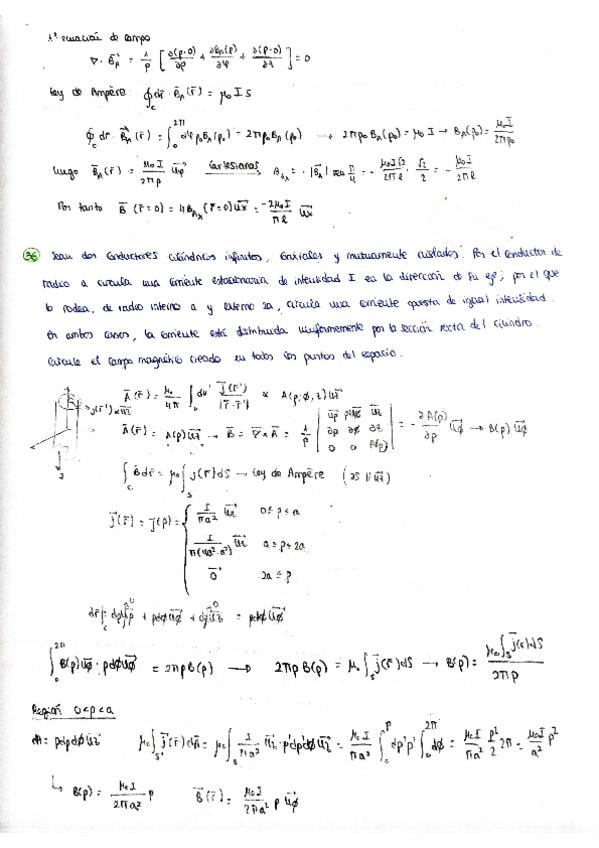 1ª ecuación de campo
∇·B_A = 1/ρ [ ∂(ρ·0)/∂ρ + ∂B_A(ρ)/∂φ + ∂(ρ·0)/∂z ] = 0
Ley de Ampère: ∮_C dr · B_A(r) = μ₀ I S
∮_C dr · B_A(r) = ∫_0^{2π} dφ ρ₀ B_A(ρ₀) = 2πρ₀ B_A(ρ₀) → 2πρ₀ B_A(ρ₀) = μ₀ I → B_A(ρ₀) = μ₀I/2πρ₀
luego B_A(r) = μ₀I/2πρ uφ Cartesianas = -|B_A| sen π/4 = - μ₀I√2/2πl · √2/2 = - μ₀I/2πl
Por tanto B(r=0) = 4B_Ax(r=0) ux = -2μ₀I/πl ux
36 Sean dos conductores cilíndricos infinitos, coaxiales y mutuamente aislados. Por el conductor de
radio a circula una corriente estacionaria de intensidad I en la dirección de su eje; por el que
lo rodea, de radio interno a y externo 2a, circula una corriente opuesta de igual intensidad.
En ambos casos, la corriente está distribuida uniformemente por la sección recta del cilindro.
Calcule el campo magnético creado en todos los puntos del espacio.
A(r) = μ₀/4π ∫_v dv' J(r')/|r-r'| ∝ A(ρ,φ,z) uz
J(r') ∝ uz
A(r) = A(ρ) uz → B = ∇×A = 1/ρ | uρ ρuφ uz ; ∂ρ ∂φ ∂z ; 0 0 A(ρ) | = - ∂A(ρ)/∂ρ uφ → B(ρ) uφ
∫_C B dr = μ₀ ∫_S J(r) dS → Ley de Ampère (dS ∥ uz)
J(r) = J(ρ) = { I/πa² uz 0≤ρ<a
I/π(4a²-a²) uz a≤ρ<2a
0 2a≤ρ
dr|_C = dρ uρ + ρdφ uφ + dz uz = ρdφ uφ
∫_0^{2π} B(ρ) uφ · ρdφ uφ = 2πρ B(ρ) → 2πρ B(ρ) = μ₀ ∫_S J(r) dS → B(ρ) = μ₀ ∫_S J(r) dS / 2πρ
Región 0<ρ<a
dA = ρdρdφ uz μ₀ ∫_S J(r) dA = μ₀ ∫_S I/πa² uz · ρ'dρ'dφ uz = μ₀I/πa² ∫_0^ρ dρ'ρ' ∫_0^{2π} dφ = μ₀I/πa² ρ²/2 2π = μ₀I/a² ρ²
↳ B(ρ) = μ₀I/2πa² ρ B(r) = μ₀I/2πa² ρ uφ